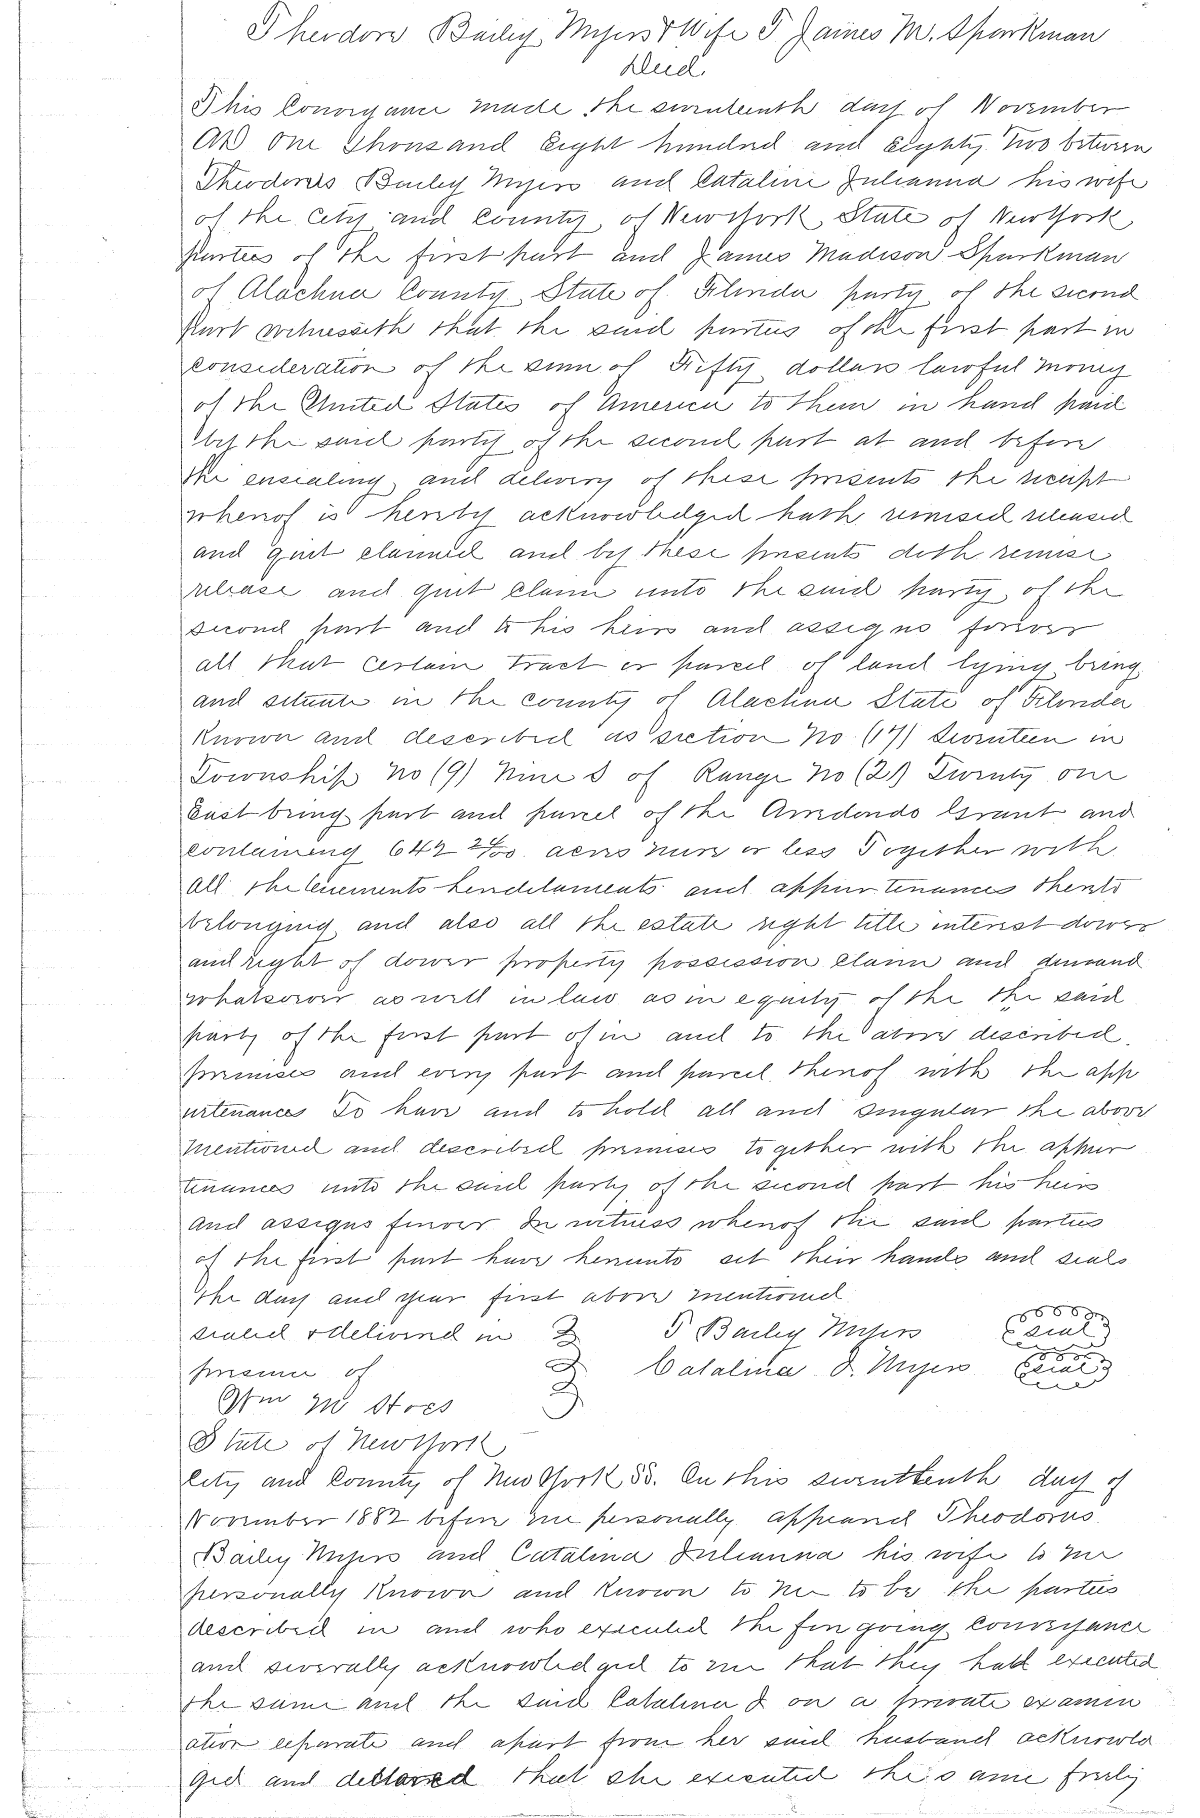 Theodore Bailey Myers & Wife T James M. Sparkman
Deed
This Conveyance made the seventeenth day of November
AD One Thousand Eight hundred and Eighty Two between
Theodorus Bailey Myers and Cataline Julianna his wife
of the City and County of New York State of New York
Parties of the first part and James Madison Sparkman
of Alachua County State of Florida party of the second
Part witnesseth that the said parties of the first part in
consideration of the sum of Fifty dollars lawful money
of the United States of America to them in hand paid
by the said party of the second part at and before
the ensealing and delivery of these presents the receipt
whereof is hereby acknowledged hath remised released
and quit claimed and by these presents doth remise
release and quit claim unto the said party of the
second part and to his heirs and assigns forever
all that certain tract or parcel of land lying being
and situate in the county of Alachua State of Florida
Known and described as section No (17) Seventeen in
Township No (9) Nine S of Range No (21) Twenty one
East being part and parcel of the Arredondo Grant and
containing 642 24/100 acres more or less Together with
all the tenements hendetaments and appurtenances thereto
belonging and also all the estate right title interest dower
and right of dower property possession claim and demand
whatsoever as well in law as in equity of the the said
party of the first part of in and to the above described
premises and every part and parcel thereof with the app
urtenances To have and to hold all and singular the above
mentioned and described premises together with the appur
tenances unto the said party of the second part his heirs
and assigns forever In witness whereof the said parties
of the first part have hereunto set their hands and seals
the day and year first above mentioned
sealed & delivered in T Bailey Myers seal
presence of Catalina J. Myers seal
Wm M Stoes
State of New York
City and County of New York SS. On this seventeenth day of
November 1882 before me personally appeared Theodorus
Bailey Myers and Catalina Julianna his wife to me
personally Known and Known to me to be the parties
described in and who executed the foregoing conveyance
and severally acknowledged to me that they had executed
the same and the said Catalina J on a private examin
ation separate and apart from her said husband acknowled
ged and declared that she executed the same freely